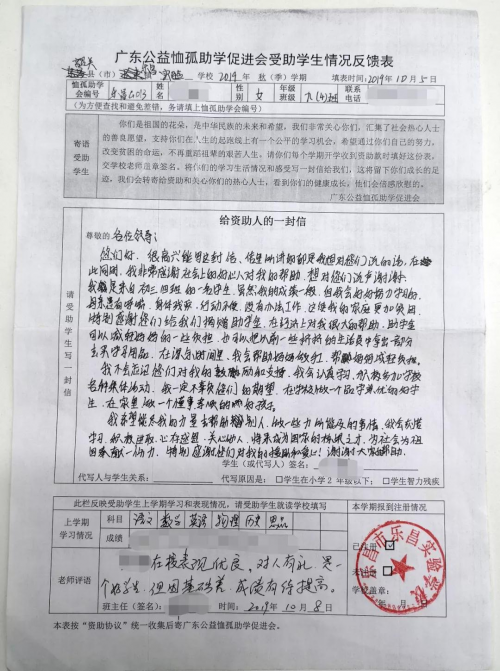 广东公益恤孤助学促进会受助学生情况反馈表
县(市) 学校 2019年 秋(季)学期 填表时间:2019年10月5日
恤孤助学会编号 姓名 性别 女 年级班级 九(4)班 联系电话
(为方便查找和避免差错,务请填上恤孤助学会编号)
寄语受助学生
你们是祖国的花朵,是中华民族的未来和希望,我们非常关心你们,汇集了社会热心人士
的善良愿望,支持你们在人生的起跑线上有一个公平的学习机会,希望通过你们自己的努力,
改变贫困的命运,不再重蹈祖辈的艰苦人生,请你们每个学期开学收到资助款时填好这份表,
交学校老师盖章签名,将你们的学习生活情况和感受写一封信给我们,这将留下你们成长的足
迹,我们会转寄给资助和关心你们的热心人士,看到你们的健康成长,他们会倍感欣慰的。
广东公益恤孤助学促进会
请受助学生写一封信
给资助人的一封信
尊敬的 各位领导:
您们好,很高兴能写这封信,信里所讲的都是我想对你们说的话,在
此同时,我非常感谢社会上的好心人对我的帮助,想对你们说声谢谢。
我是来自初三四班的一名学生,虽然我的成绩一般,但我会好好努力学习的。
行动不便,没有办法工作,这使我的家庭更加贫困。
特别感谢你们给我们捐赠助学金,在经济上对我很大的帮助,助学金
可以减轻妈妈的一些负担,也可以
去买学习用品,在课余时间里,我会帮助妈妈做家务,帮
我不会忘记你们对我的鼓励和支持,我会认真学习,积极参加学校
名胜集体活动,我一定不辜负您们的期望,在学校做一个品学兼优的好学
生,在家里做一个懂事孝顺的好孩子。
我希望能尽我的力量去帮助别人,做一些力所能及的事情,我会永远
学习,积极进取,心存感恩,关心他人,将来成为国家的栋梁之才,为社会为祖
国奉献一份力,特别感谢你们对我的援助和爱心!谢谢大家的帮助。
学生(或代写人)签名:
代写人与学生关系: 代写原因是:□学生在小学2年级以下;□学生智力残疾
此栏反映受助学生上学期学习和表现情况,请受助学生就读学校填写 本学期报到注册情况
上学期学习情况 科目 语文 数学 英语 物理 历史 思品
成绩
已注册 ☑
未注册
学校盖章:
年 月 日
乐昌市乐昌实验学校
老师评语
在校表现优良,对人有礼,是一
个好学生,但因基础差,成绩有待提高。
班主任(签名): 时间:2019年10月8日
本表按“资助协议”统一收集后寄广东公益恤孤助学促进会。